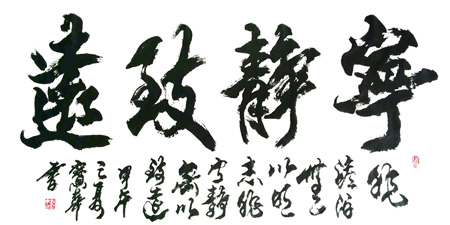 寧靜致遠
非
澹泊
無
以明
志非
寧靜
無以
致遠
甲午
之夏
書